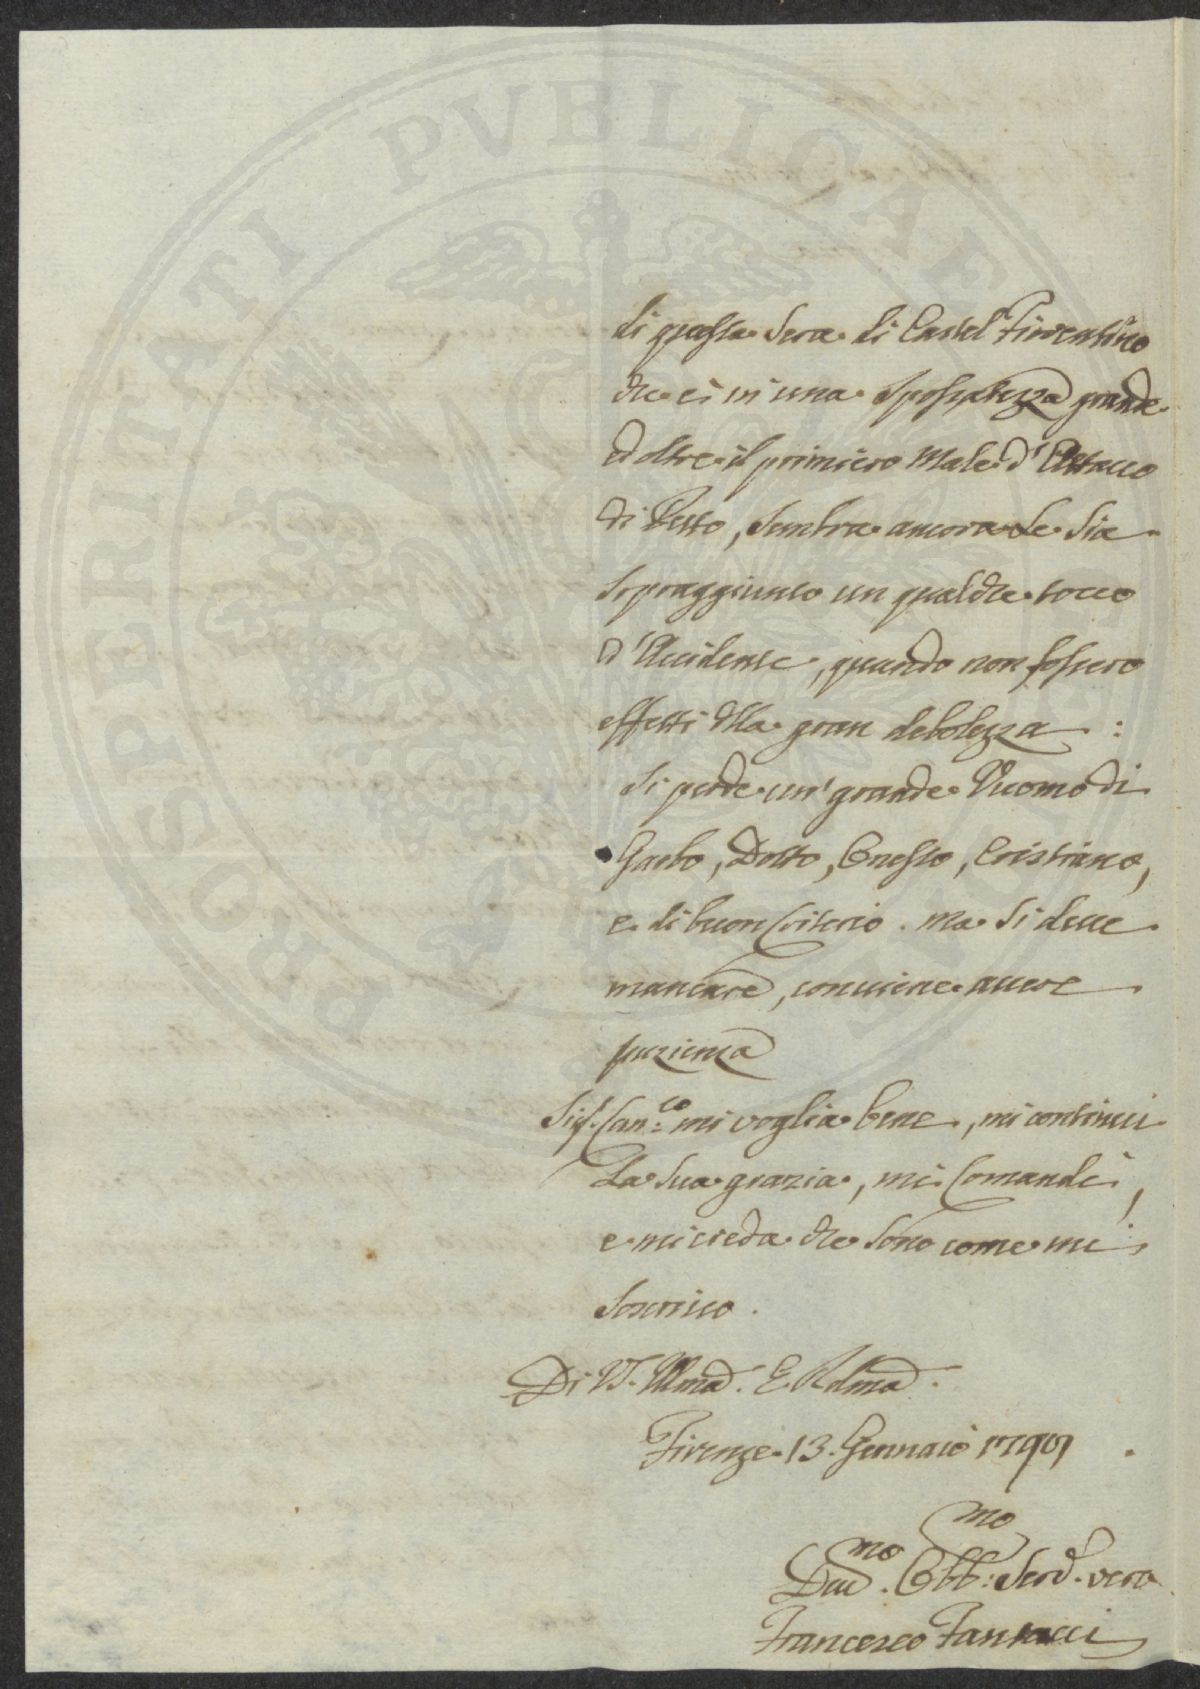 PROSPERITATI PVBLICAE
di questa Sera di Castel Fiorentino
che è in una Spossatezza grande
ed oltre il primiero Male d'Attacco
di Petto, Sembra ancora che Sia
Sopraggiunto un qualche tocco
d'Accidente, quando non fossero
effetti della gran debolezza :
Si perde un' grande Uuomo di
Garbo, Dotto, Onesto, Cristiano,
e di buon Criterio . ma Si deue
mancare, conuiene auere
pazienza
Sig.r Can:co mi voglia bene, mi continui
La Sua grazia, mi Comandi,
e mi creda che Sono come mi
Soscrivo .
Di V.S. Illma. E Rdma.
Firenze 13. Gennaio 1791 .
Deu.mo Obb:mo Serv.e vero
Francesco Fannucci